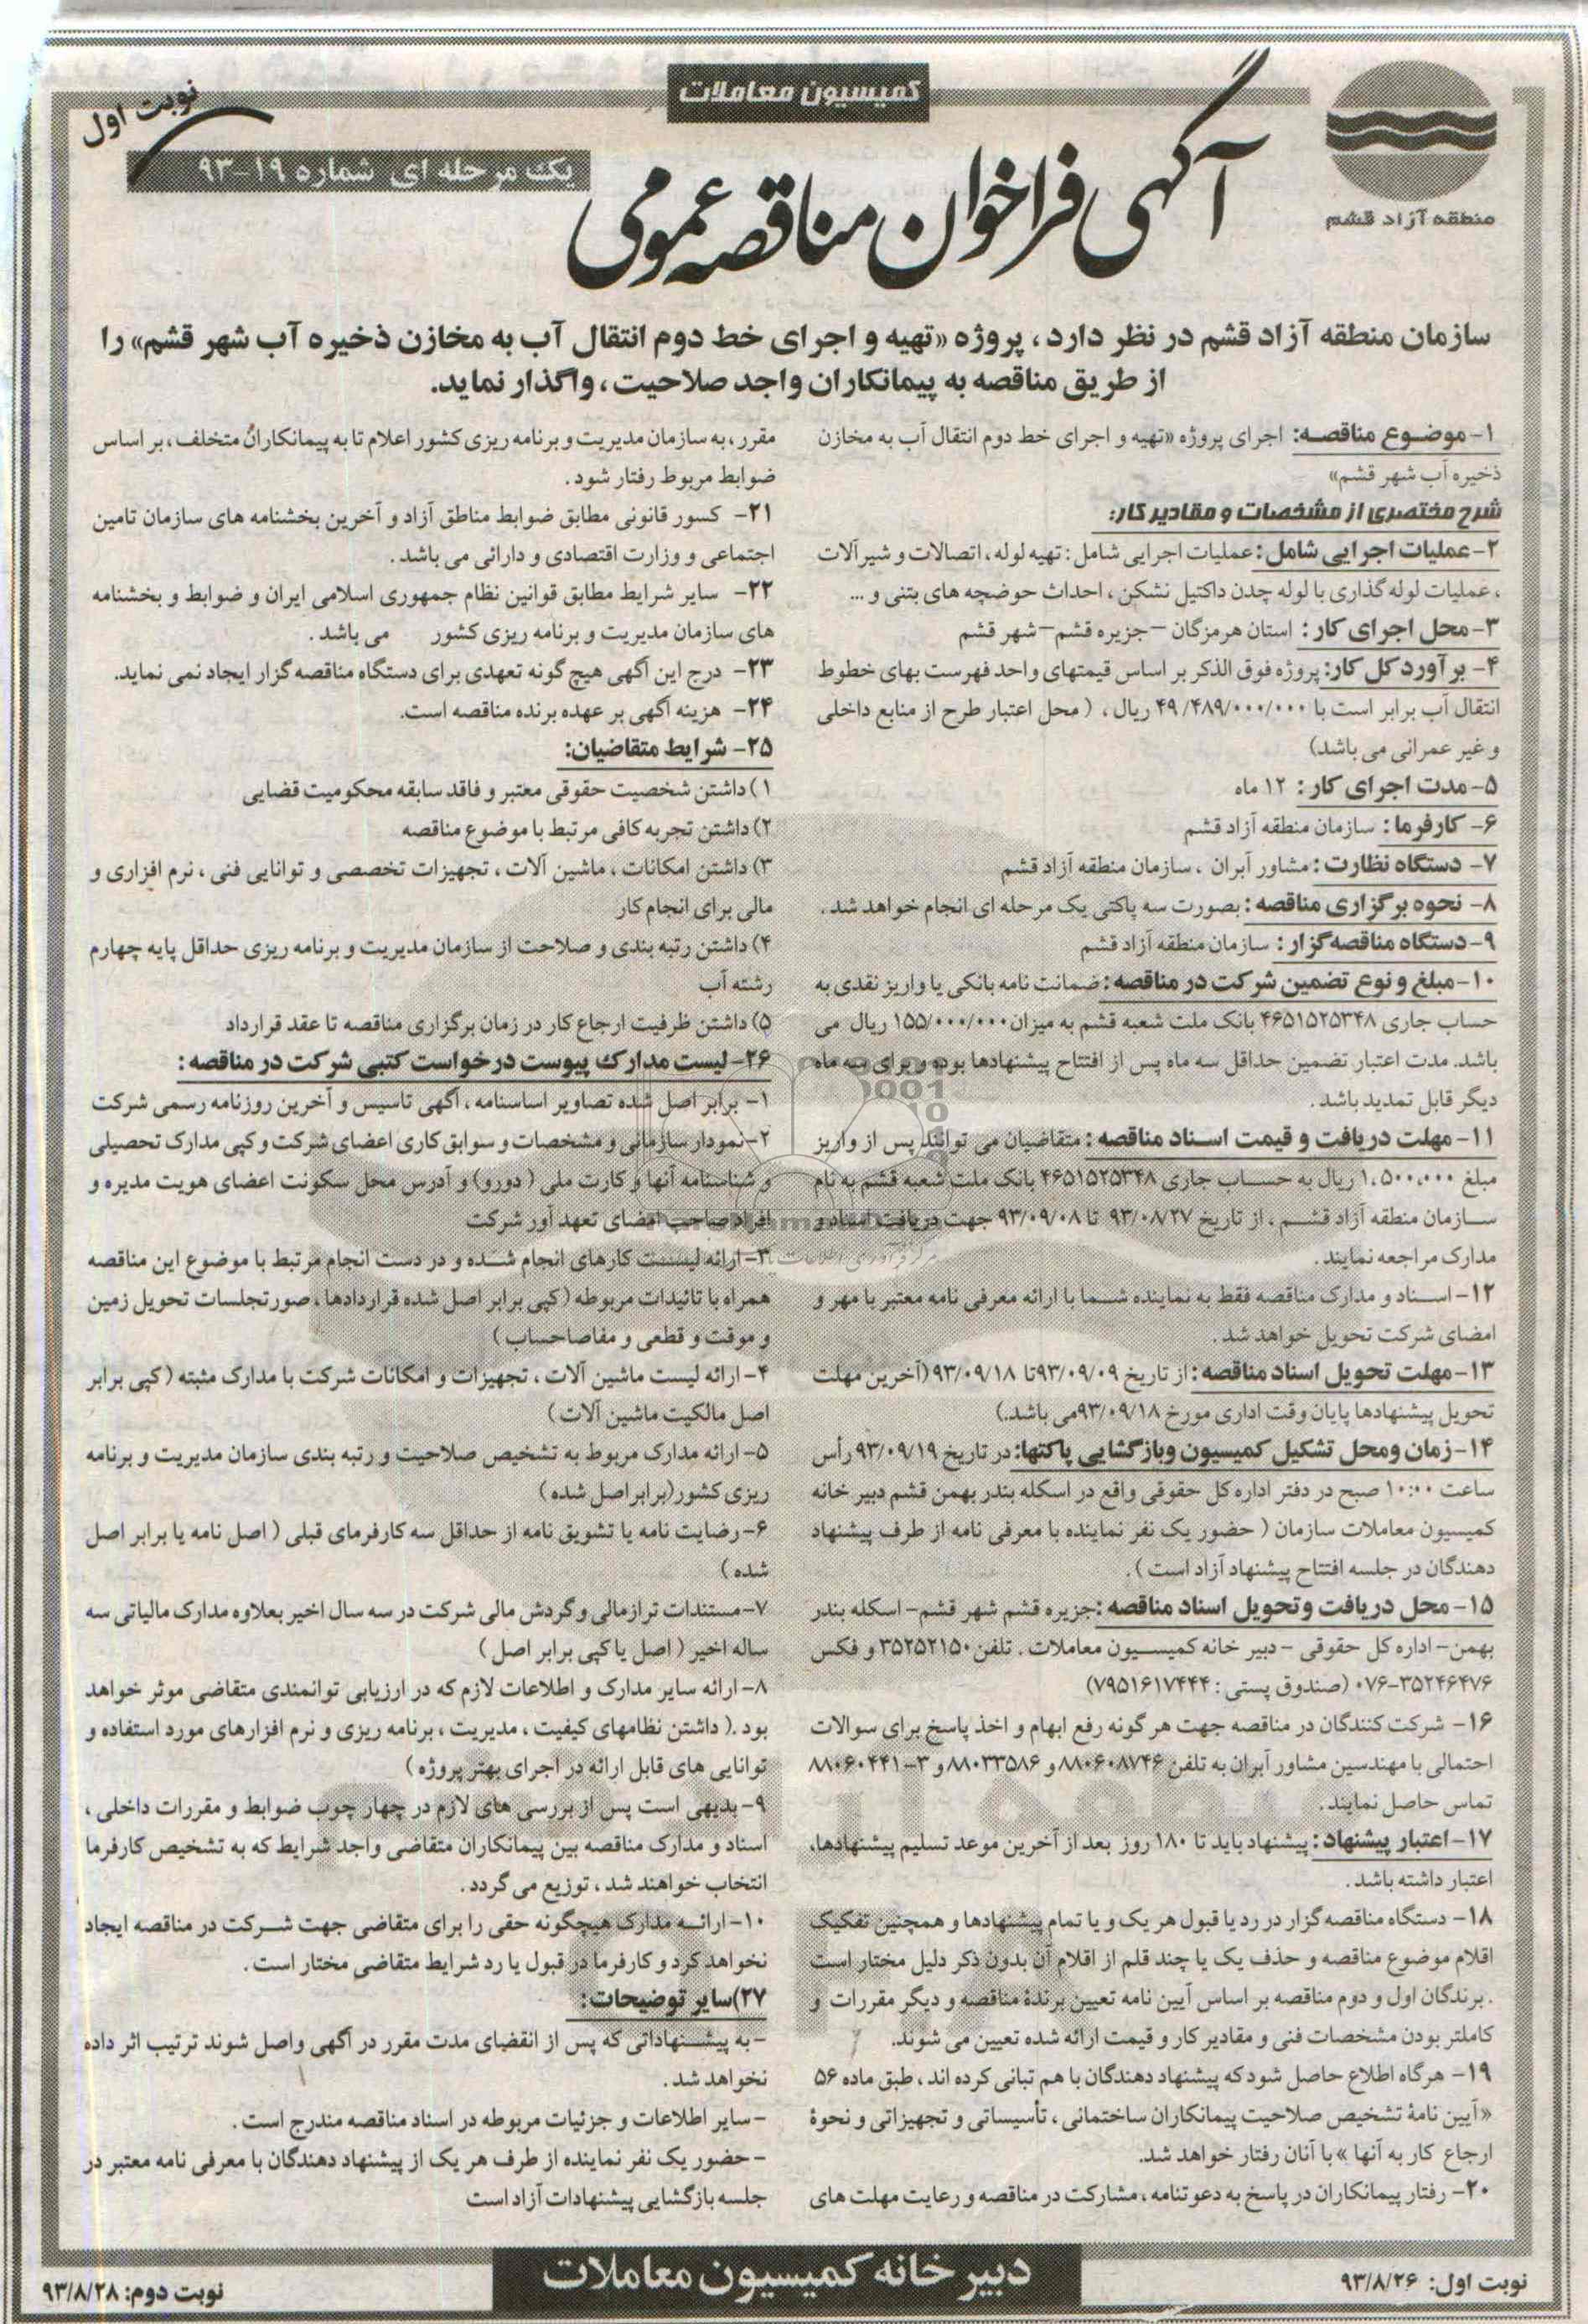 کمیسیون معاملات
منطقه آزاد قشم
نوبت اول
آگهی فراخوان مناقصه عمومی
یک مرحله ای شماره ۱۹-۹۳
سازمان منطقه آزاد قشم در نظر دارد، پروژه «تهیه و اجرای خط دوم انتقال آب به مخازن ذخیره آب شهر قشم» را
از طریق مناقصه به پیمانکاران واجد صلاحیت، واگذار نماید.
۱- موضوع مناقصه: اجرای پروژه «تهیه و اجرای خط دوم انتقال آب به مخازن
ذخیره آب شهر قشم»
شرح مختصری از مشخصات و مقادیر کار:
۲- عملیات اجرایی شامل: عملیات اجرایی شامل: تهیه لوله، اتصالات و شیرآلات
، عملیات لوله گذاری با لوله چدن داکتیل نشکن، احداث حوضچه های بتنی و ...
۳- محل اجرای کار: استان هرمزگان -جزیره قشم-شهر قشم
۴- برآورد کل کار: پروژه فوق الذکر بر اساس قیمتهای واحد فهرست بهای خطوط
انتقال آب برابر است با ۴۹/۴۸۹/۰۰۰/۰۰۰ ریال، (محل اعتبار طرح از منابع داخلی
و غیر عمرانی می باشد)
۵- مدت اجرای کار: ۱۲ ماه
۶- کارفرما: سازمان منطقه آزاد قشم
۷- دستگاه نظارت: مشاور آبران، سازمان منطقه آزاد قشم
۸- نحوه برگزاری مناقصه: بصورت سه پاکتی یک مرحله ای انجام خواهد شد.
۹- دستگاه مناقصه گزار: سازمان منطقه آزاد قشم
۱۰- مبلغ و نوع تضمین شرکت در مناقصه: ضمانت نامه بانکی یا واریز نقدی به
حساب جاری ۴۶۵۱۵۲۵۳۴۸ بانک ملت شعبه قشم به میزان ۱۵۵/۰۰۰/۰۰۰ ریال می
باشد. مدت اعتبار تضمین حداقل سه ماه پس از افتتاح پیشنهادها بوده و برای سه ماه
دیگر قابل تمدید باشد.
۱۱- مهلت دریافت و قیمت اسناد مناقصه: متقاضیان می توانند پس از واریز
مبلغ ۱،۵۰۰،۰۰۰ ریال به حساب جاری ۴۶۵۱۵۲۵۳۴۸ بانک ملت شعبه قشم به نام
سازمان منطقه آزاد قشم، از تاریخ ۹۳/۰۸/۲۷ تا ۹۳/۰۹/۰۸ جهت دریافت اسناد و
مدارک مراجعه نمایند.
۱۲- اسناد و مدارک مناقصه فقط به نماینده شما با ارائه معرفی نامه معتبر با مهر و
امضای شرکت تحویل خواهد شد.
۱۳- مهلت تحویل اسناد مناقصه: از تاریخ ۹۳/۰۹/۰۹ تا ۹۳/۰۹/۱۸ (آخرین مهلت
تحویل پیشنهادها پایان وقت اداری مورخ ۹۳/۰۹/۱۸ می باشد.)
۱۴- زمان و محل تشکیل کمیسیون و بازگشایی پاکتها: در تاریخ ۹۳/۰۹/۱۹ رأس
ساعت ۱۰:۰۰ صبح در دفتر اداره کل حقوقی واقع در اسکله بندر بهمن قشم دبیر خانه
کمیسیون معاملات سازمان (حضور یک نفر نماینده با معرفی نامه از طرف پیشنهاد
دهندگان در جلسه افتتاح پیشنهاد آزاد است).
۱۵- محل دریافت و تحویل اسناد مناقصه: جزیره قشم شهر قشم- اسکله بندر
بهمن- اداره کل حقوقی - دبیر خانه کمیسیون معاملات. تلفن ۳۵۲۵۲۱۵۰ و فکس
۰۷۶-۳۵۲۴۶۴۷۶ (صندوق پستی: ۷۹۵۱۶۱۷۴۴۴)
۱۶- شرکت کنندگان در مناقصه جهت هر گونه رفع ابهام و اخذ پاسخ برای سوالات
احتمالی با مهندسین مشاور آبران به تلفن ۸۸۰۶۰۸۷۴۶ و ۸۸۰۳۳۵۸۶ و ۳-۸۸۰۶۰۴۴۱
تماس حاصل نمایند.
۱۷- اعتبار پیشنهاد: پیشنهاد باید تا ۱۸۰ روز بعد از آخرین موعد تسلیم پیشنهادها،
اعتبار داشته باشد.
۱۸- دستگاه مناقصه گزار در رد یا قبول هر یک و یا تمام پیشنهادها و همچنین تفکیک
اقلام موضوع مناقصه و حذف یک یا چند قلم از اقلام آن بدون ذکر دلیل مختار است
. برندگان اول و دوم مناقصه بر اساس آیین نامه تعیین برندهٔ مناقصه و دیگر مقررات و
کاملتر بودن مشخصات فنی و مقادیر کار و قیمت ارائه شده تعیین می شوند.
۱۹- هرگاه اطلاع حاصل شود که پیشنهاد دهندگان با هم تبانی کرده اند، طبق ماده ۵۶
«آیین نامهٔ تشخیص صلاحیت پیمانکاران ساختمانی، تأسیساتی و تجهیزاتی و نحوهٔ
ارجاع کار به آنها» با آنان رفتار خواهد شد.
۲۰- رفتار پیمانکاران در پاسخ به دعوتنامه، مشارکت در مناقصه و رعایت مهلت های
مقرر، به سازمان مدیریت و برنامه ریزی کشور اعلام تا به پیمانکاران متخلف، بر اساس
ضوابط مربوط رفتار شود.
۲۱- کسور قانونی مطابق ضوابط مناطق آزاد و آخرین بخشنامه های سازمان تامین
اجتماعی و وزارت اقتصادی و دارائی می باشد.
۲۲- سایر شرایط مطابق قوانین نظام جمهوری اسلامی ایران و ضوابط و بخشنامه
های سازمان مدیریت و برنامه ریزی کشور می باشد.
۲۳- درج این آگهی هیچ گونه تعهدی برای دستگاه مناقصه گزار ایجاد نمی نماید.
۲۴- هزینه آگهی بر عهده برنده مناقصه است.
۲۵- شرایط متقاضیان:
۱) داشتن شخصیت حقوقی معتبر و فاقد سابقه محکومیت قضایی
۲) داشتن تجربه کافی مرتبط با موضوع مناقصه
۳) داشتن امکانات، ماشین آلات، تجهیزات تخصصی و توانایی فنی، نرم افزاری و
مالی برای انجام کار
۴) داشتن رتبه بندی و صلاحت از سازمان مدیریت و برنامه ریزی حداقل پایه چهارم
رشته آب
۵) داشتن ظرفیت ارجاع کار در زمان برگزاری مناقصه تا عقد قرارداد
۲۶- لیست مدارک پیوست درخواست کتبی شرکت در مناقصه:
۱- برابر اصل شده تصاویر اساسنامه، آگهی تاسیس و آخرین روزنامه رسمی شرکت
۲- نمودار سازمانی و مشخصات و سوابق کاری اعضای شرکت و کپی مدارک تحصیلی
و شناسنامه آنها و کارت ملی (دورو) و آدرس محل سکونت اعضای هویت مدیره و
افراد صاحب امضای تعهد آور شرکت
۳- ارائه لیست کارهای انجام شده و در دست انجام مرتبط با موضوع این مناقصه
همراه با تائیدات مربوطه (کپی برابر اصل شده قراردادها، صورتجلسات تحویل زمین
و موقت و قطعی و مفاصاحساب)
۴- ارائه لیست ماشین آلات، تجهیزات و امکانات شرکت با مدارک مثبته (کپی برابر
اصل مالکیت ماشین آلات)
۵- ارائه مدارک مربوط به تشخیص صلاحیت و رتبه بندی سازمان مدیریت و برنامه
ریزی کشور(برابر اصل شده)
۶- رضایت نامه یا تشویق نامه از حداقل سه کارفرمای قبلی (اصل نامه یا برابر اصل
شده)
۷- مستندات ترازمالی و گردش مالی شرکت در سه سال اخیر بعلاوه مدارک مالیاتی سه
ساله اخیر (اصل یا کپی برابر اصل)
۸- ارائه سایر مدارک و اطلاعات لازم که در ارزیابی توانمندی متقاضی موثر خواهد
بود. (داشتن نظامهای کیفیت، مدیریت، برنامه ریزی و نرم افزارهای مورد استفاده و
توانایی های قابل ارائه در اجرای بهتر پروژه)
۹- بدیهی است پس از بررسی های لازم در چهار چوب ضوابط و مقررات داخلی،
اسناد و مدارک مناقصه بین پیمانکاران متقاضی واجد شرایط که به تشخیص کارفرما
انتخاب خواهند شد، توزیع می گردد.
۱۰- ارائه مدارک هیچگونه حقی را برای متقاضی جهت شرکت در مناقصه ایجاد
نخواهد کرد و کارفرما در قبول یا رد شرایط متقاضی مختار است.
۲۷) سایر توضیحات:
- به پیشنهاداتی که پس از انقضای مدت مقرر در آگهی واصل شوند ترتیب اثر داده
نخواهد شد.
- سایر اطلاعات و جزئیات مربوطه در اسناد مناقصه مندرج است.
- حضور یک نفر نماینده از طرف هر یک از پیشنهاد دهندگان با معرفی نامه معتبر در
جلسه بازگشایی پیشنهادات آزاد است
دبیر خانه کمیسیون معاملات
نوبت اول: ۹۳/۸/۲۶
نوبت دوم: ۹۳/۸/۲۸